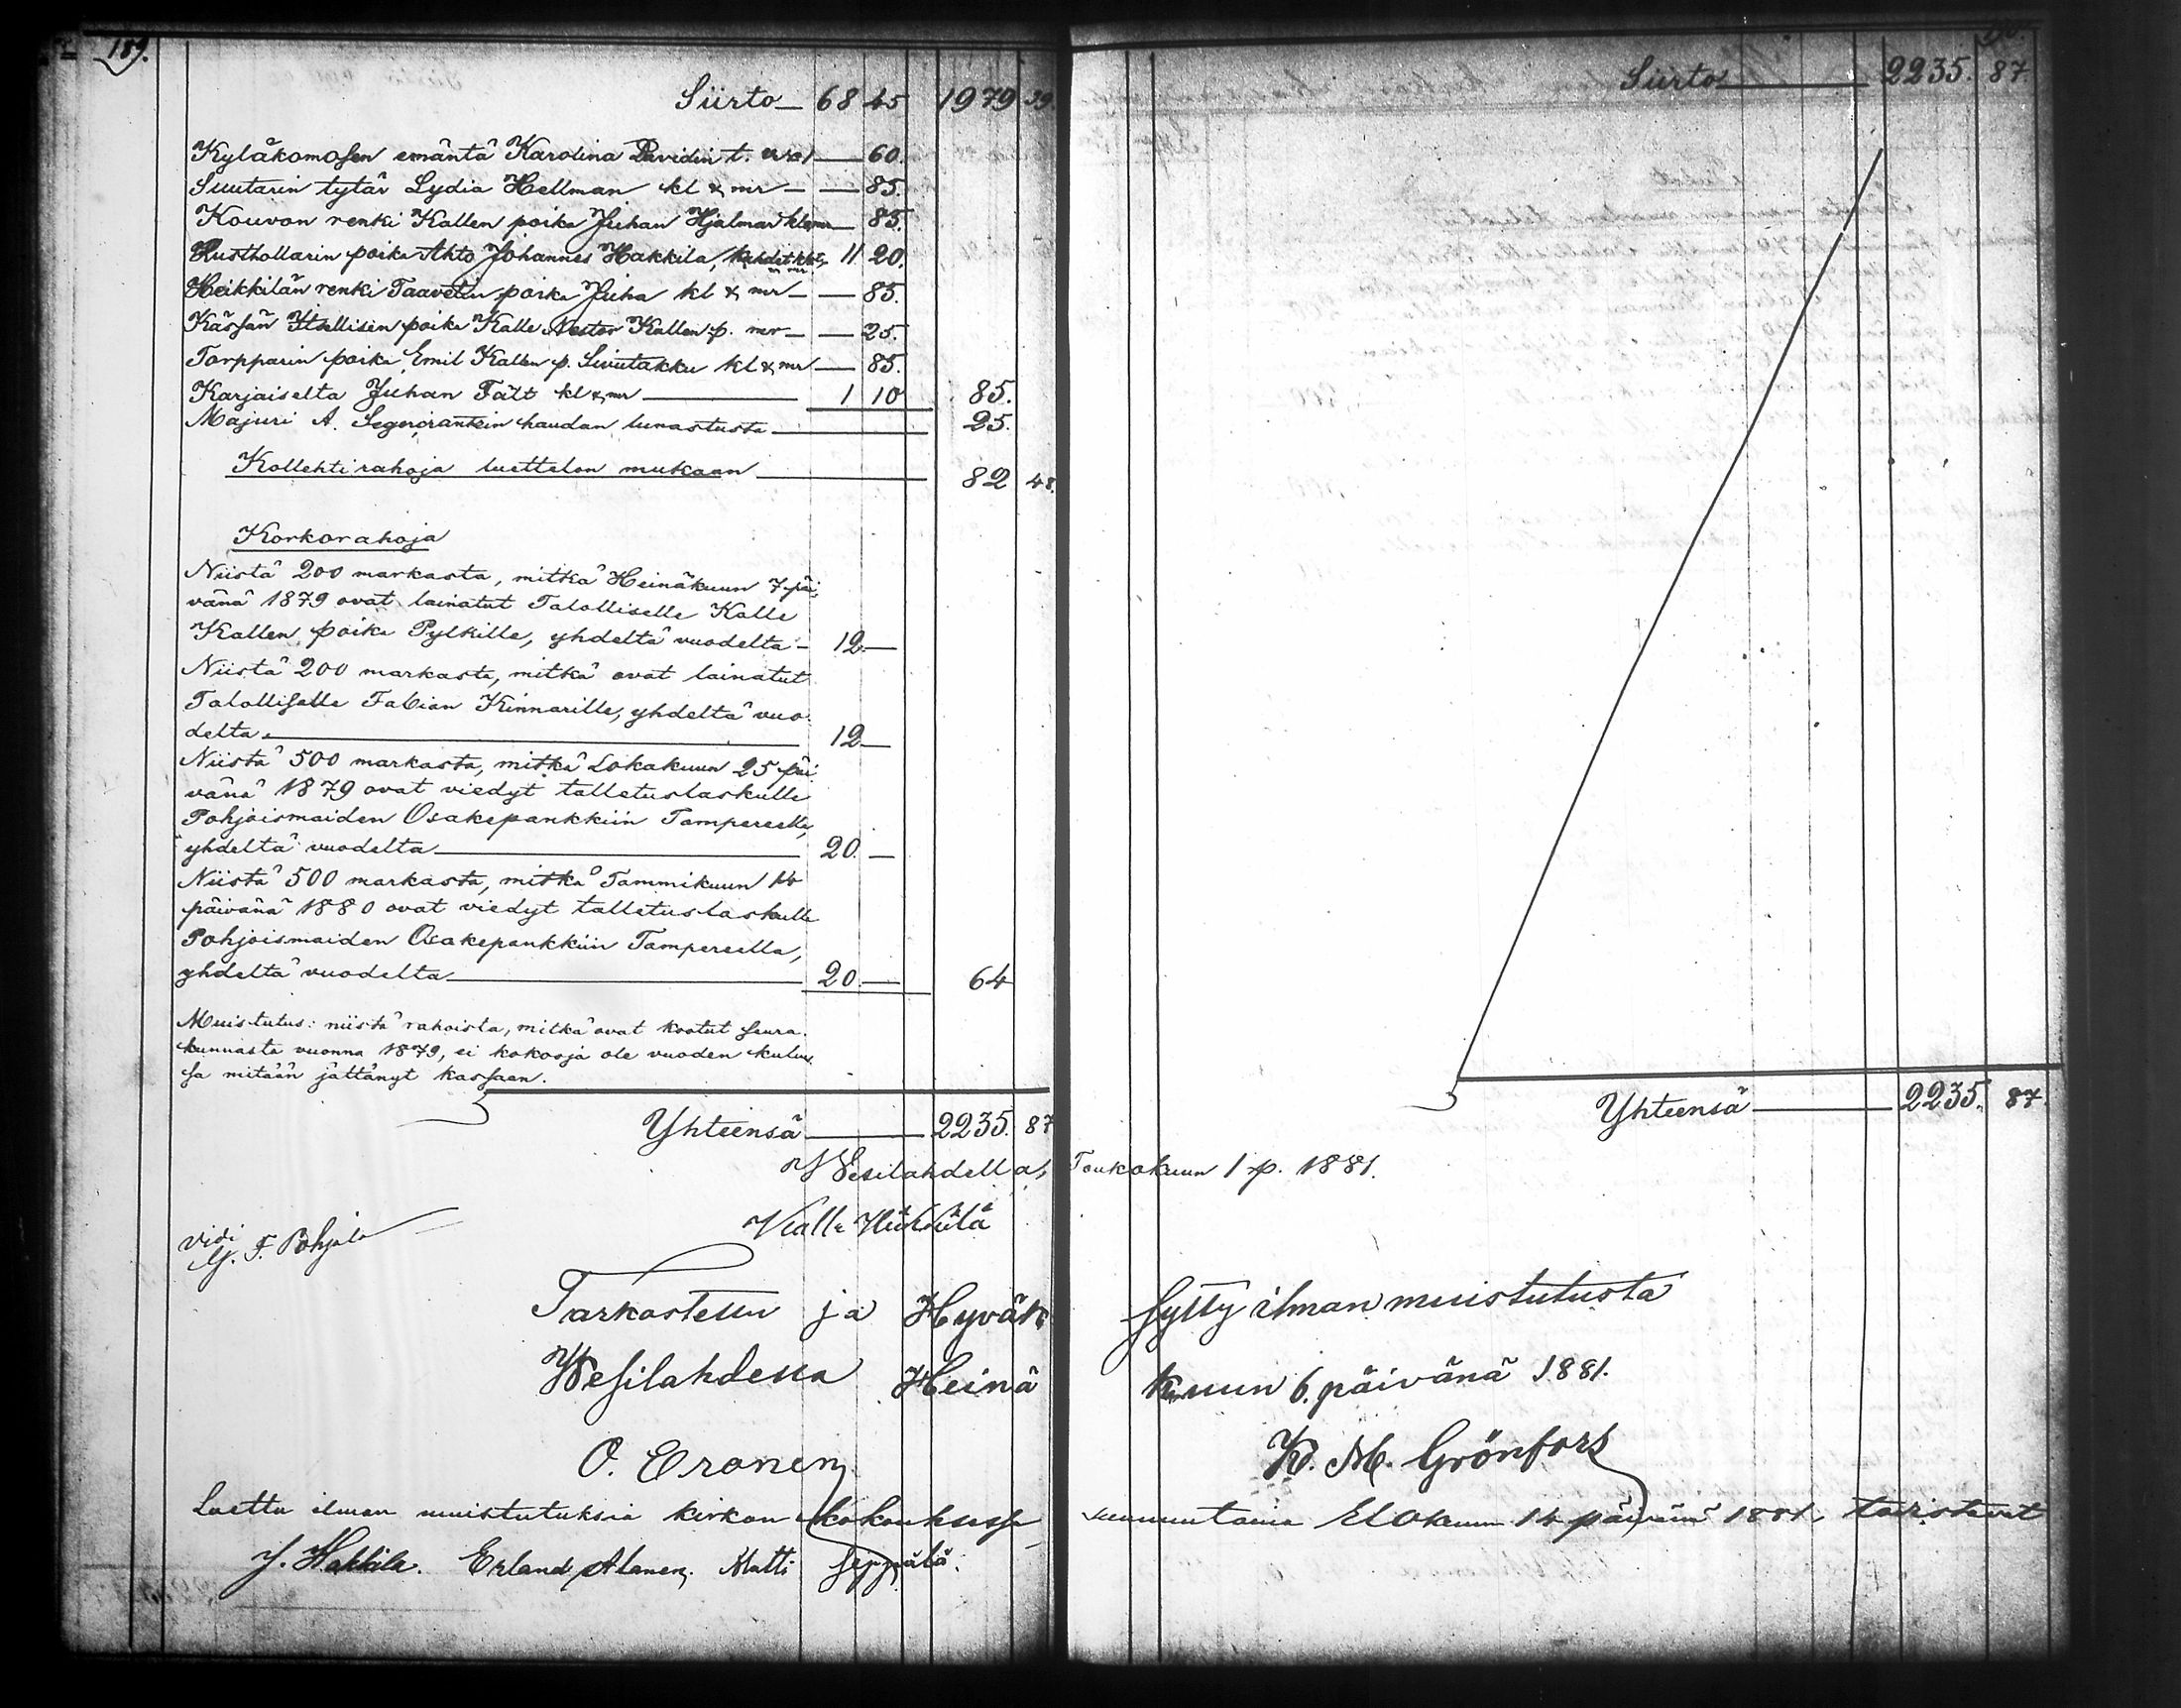 189.
Siirto — 68 45 1979 39.
Kyläkomosen emäntä Karolina Davidin t. — 60.
Suutarin tytär Lydia Hellman kl & mr — — 85.
Kouvon renki Kallen poika Juhan Hjalmar kl & mr — 85.
Rusthollarin poika Ahto Johannes Hakkila, kahdet kl & mr 11. 20.
Heikkilän renki Taavetin poika Juha kl & mr — — 85.
Kässän Itsellisen poika Kalle Nestor Kallen p. mr — — 25.
Torpparin poika Emil Kallen p. Sivutakku kl & mr — 85.
Karjaiselta Juhan Fält kl & mr — 1 10 85.
Majuri A. haudan lunastusta — 25.
Kollehti rahoja luettelon mukaan — 82 48.
Korkorahoja
Niistä 200 markasta, mitkä Heinäkuun 7 päi-
vänä 1879 ovat lainatut Talolliselle Kalle
Kallen poika Pylkille, yhdeltä vuodelta — 12 —
Niistä 200 markasta, mitkä ovat lainatut
Talolliselle Fabian Kinnarille, yhdeltä vuo-
delta — 12 —
Niistä 500 markasta, mitkä Lokakuun 25 päi
vänä 1879 ovat viedyt talletuslaskulle
Pohjoismaiden Osakepankkiin Tampereella,
yhdeltä vuodelta — 20. —
Niistä 500 markasta, mitkä Tammikuun 14
päivänä 1880 ovat viedyt talletuslaskulle
Pohjoismaiden Osakepankkiin Tampereella,
yhdeltä vuodelta — 20 — 64
Muistutus: niistä rahoista, mitkä ovat kootut seura-
kunnasta vuonna 1879, ei kokooja ole vuoden kulues
sa mitään jättänyt kassaan.
Yhteensä — 2235. 87
Siirto — 2235. 87
Yhteensä — 2235. 87.
Wesilahdella, Toukokuun 1 p. 1881.
Kalle Heikkilä
vidi
G. F. Pohjala
Tarkastettu ja Hyväk sytty ilman muistutusta
Wesilahdessa Heinä kuun 6. päivänä 1881.
O. Eronen K. M. Grönfors
Luettu ilman muistutuksia kirkon kokouksessa sunnuntaina Elokuun 14 päivänä 1881, todistavat
J. Hakkila. Erland Alanen. Matti Seppälä.